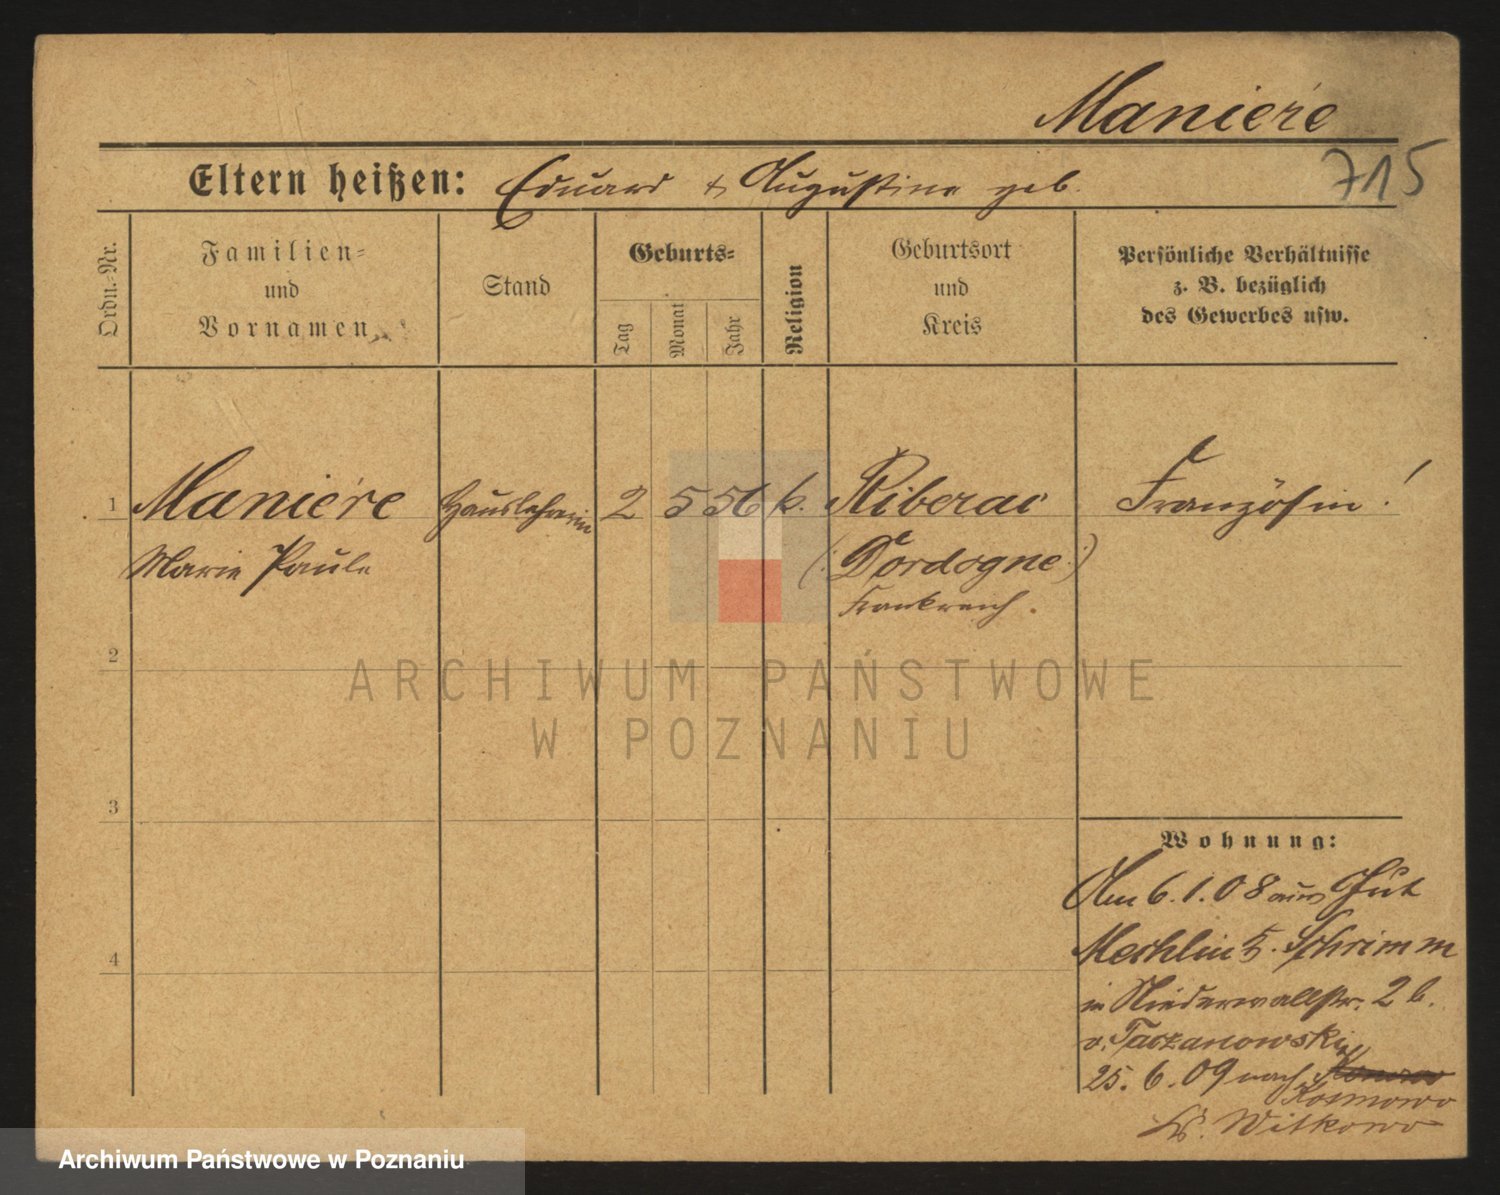 Maniere
715
Eltern heißen: Eduard & Augustine geb.
Ordn.-Nr.
Familien- und Vornamen
Stand
Geburts-
Tag
Monat
Jahr
Religion
Geburtsort und Kreis
Persönliche Verhältnisse
z. B. bezüglich
des Gewerbes usw.
1 Maniére Hauslehrerin 2 5 56 k. Riberac Französin!
Marie Paule (: Dordogne :)
Frankreich.
2
ARCHIWUM PAŃSTWOWE
W POZNANIU
3
Wohnung:
Am 6.1.08 aus Gut
Mechlin K. Schrimm
4
in Niederwallstr. 2 b.
v. Taczanowski
25. 6. 09 nach
Kosmowo
Kr. Witkowo
Archiwum Państwowe w Poznaniu